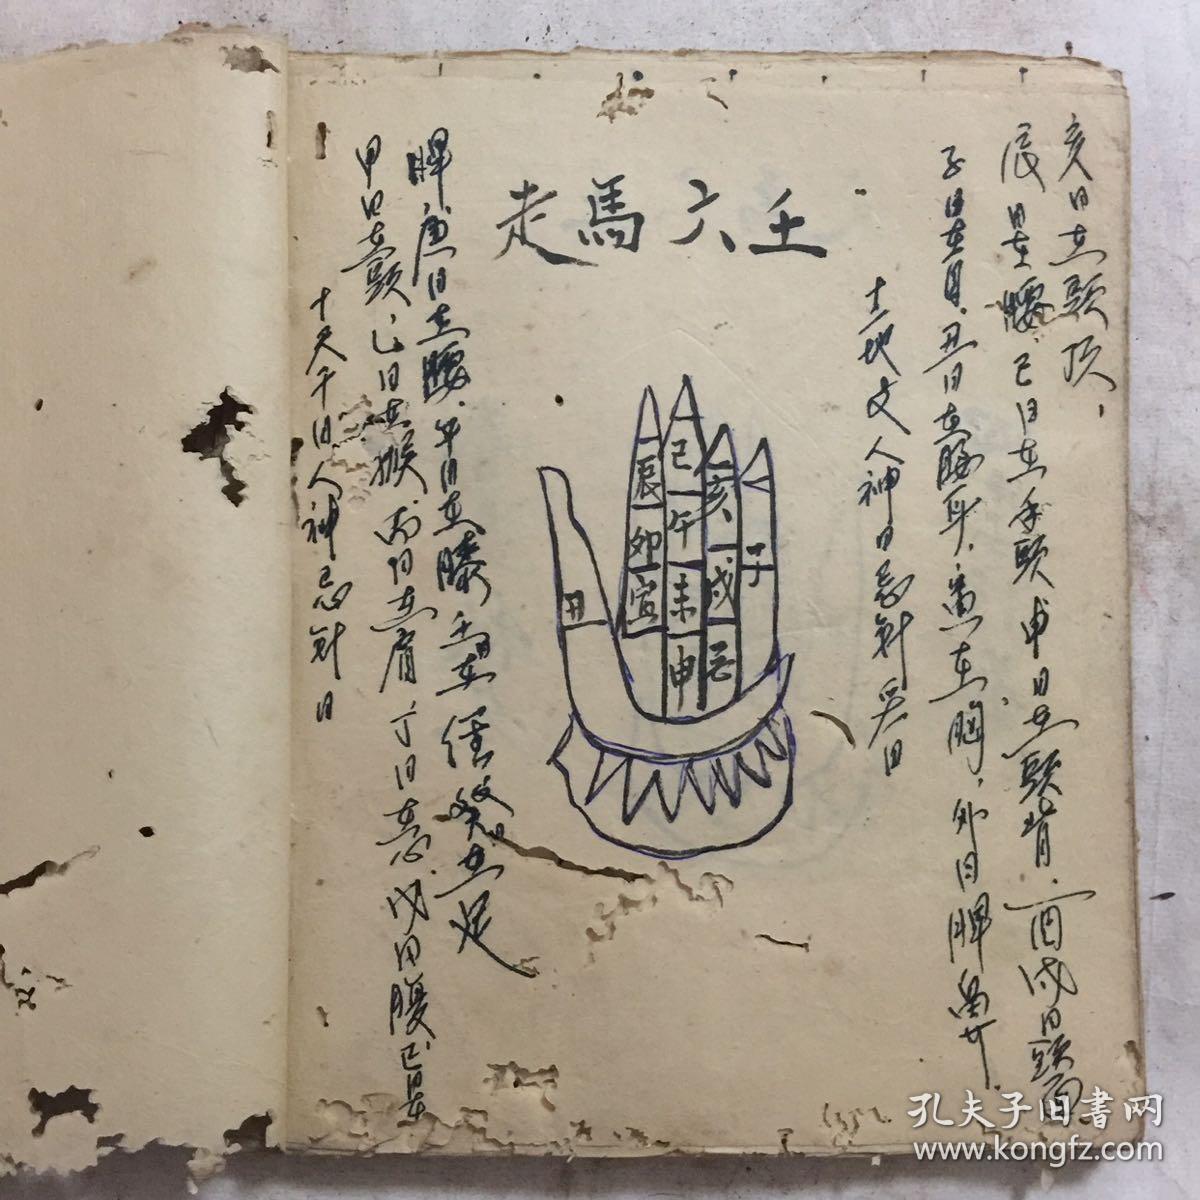 走馬六壬
十天干日人神忌針日
甲日在頭、乙日在喉 丙日在肩 丁日在心 戊日腹 己日在
脾 庚日在腰、辛日在膝 壬日在 癸日在足
辰
卯
寅
丑
巳
午
未
申
亥
戌
子
十二地支人神日忌針灸日
子日在目、丑日在腰耳、寅在胸、卯日脾鼻
辰日在腰、巳日在手頭 申日在頭背、酉戌日頭面
亥日在頸項、
孔夫子旧書网
www.kongfz.com